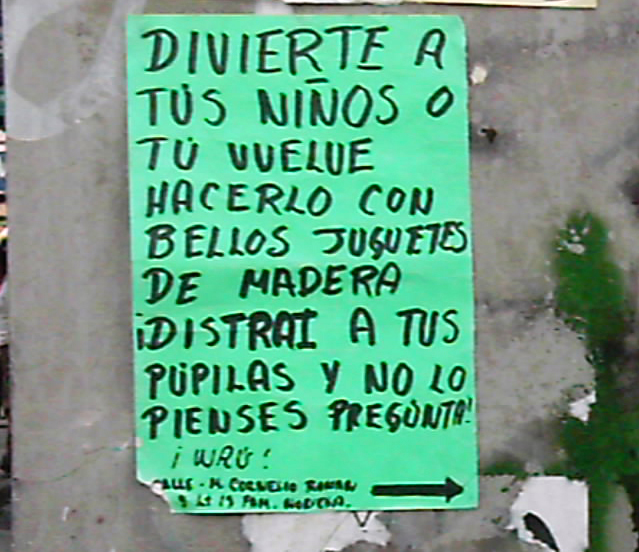 DIVIERTE A
TÚS NIÑOS O
TÚ VUELVE
HACERLO CON
BELLOS JUGUETES
DE MADERA
¡DISTRAI A TUS
PÚPILAS Y NO LO
PIENSES PREGÚNTA!
¡WAÚ!
CALLE - M. CORNELIO ROMAN